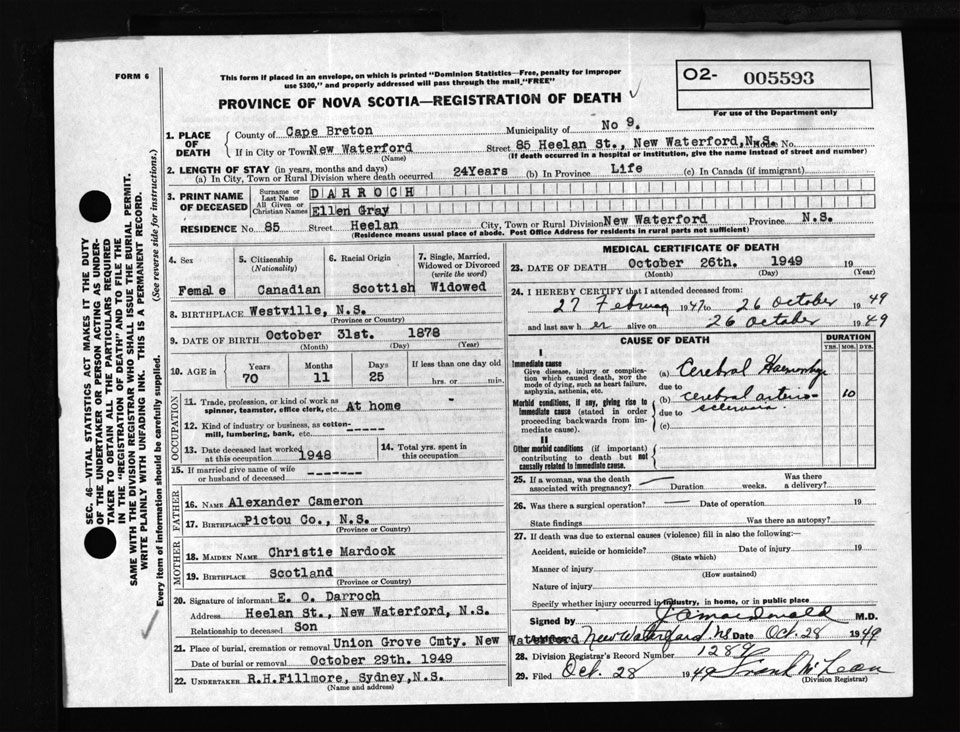 FORM 6
This form if placed in an envelope, on which is printed "Dominion Statistics—Free, penalty for improper
use $300," and properly addressed will pass through the mail "FREE"
O2- 005593
For use of the Department only
PROVINCE OF NOVA SCOTIA—REGISTRATION OF DEATH
1. PLACE OF DEATH
County of Cape Breton Municipality of No 9.
If in City or Town New Waterford Street 85 Heelan St., New Waterford, N.S. House No.
(Name) (If death occurred in a hospital or institution, give the name instead of street and number)
2. LENGTH OF STAY (in years, months and days)
(a) In City, Town or Rural Division where death occurred 24Years (b) In Province Life (c) In Canada (if immigrant)
3. PRINT NAME OF DECEASED
Surname or Last Name DARROCH
All Given or Christian Names Ellen Gray
RESIDENCE No 85 Street Heelan City, Town or Rural Division New Waterford Province N.S.
(Residence means usual place of abode. Post Office Address for residents in rural parts not sufficient)
4. Sex
Female
5. Citizenship (Nationality)
Canadian
6. Racial Origin
Scottish
7. Single, Married, Widowed or Divorced (write the word)
Widowed
8. BIRTHPLACE Westville, N.S.
(Province or Country)
9. DATE OF BIRTH October 31st. 1878
(Month) (Day) (Year)
10. AGE in
Years Months Days If less than one day old
70 11 25 hrs. or min.
OCCUPATION
11. Trade, profession, or kind of work as
spinner, teamster, office clerk, etc. At home
12. Kind of industry or business, as cotton-
mill, lumbering, bank, etc. -----
13. Date deceased last worked at this occupation 1948
14. Total yrs. spent in this occupation
15. If married give name of wife
or husband of deceased -------
FATHER
16. NAME Alexander Cameron
17. BIRTHPLACE Pictou Co., N.S.
(Province or Country)
MOTHER
18. MAIDEN NAME Christie Mardock
19. BIRTHPLACE Scotland
(Province or Country)
20. Signature of informant E. O. Darroch
Address Heelan St., New Waterford, N.S.
Relationship to deceased Son
21. Place of burial, cremation or removal Union Grove Cmty. New Waterford
Date of burial or removal October 29th. 1949
22. UNDERTAKER R.H.Fillmore, Sydney,N.S.
(Name and address)
MEDICAL CERTIFICATE OF DEATH
23. DATE OF DEATH October 26th. 1949 19
(Month) (Day) (Year)
24. I HEREBY CERTIFY that I attended deceased from:
27 February 1947 to 26 October 1949
and last saw her alive on 26 October 1949
CAUSE OF DEATH
DURATION
YRS. MOS. DYS.
I
Immediate cause
Give disease, injury or complica-
tion which caused death, not the
mode of dying, such as heart failure,
asphyxia, asthenia, etc.
(a) Cerebral Haemorrhage
due to
Morbid conditions, if any, giving rise to
immediate cause (stated in order
proceeding backwards from im-
mediate cause).
(b) cerebral arterio- 10
due to sclerosis.
(c)
II
Other morbid conditions (if important)
contributing to death but not
causally related to immediate cause.
25. If a woman, was the death
associated with pregnancy? — Duration weeks. Was there a delivery?
26. Was there a surgical operation? — Date of operation 19
State findings Was there an autopsy?
27. If death was due to external causes (violence) fill in also the following:—
Accident, suicide or homicide? Date of injury 19
(State which)
Manner of injury
(How sustained)
Nature of injury
Specify whether injury occurred in industry, in home, or in public place
Signed by J A MacDonald M.D.
New Waterford NS Date Oct. 28 1949
28. Division Registrar's Record Number 1289
29. Filed Oct. 28 1949 Frank McLean
(Division Registrar)
SEC. 46—VITAL STATISTICS ACT MAKES IT THE DUTY
OF THE UNDERTAKER OR PERSON ACTING AS UNDER-
TAKER TO OBTAIN ALL THE PARTICULARS REQUIRED
IN THE "REGISTRATION OF DEATH" AND TO FILE THE
SAME WITH THE DIVISION REGISTRAR WHO SHALL ISSUE THE BURIAL PERMIT.
WRITE PLAINLY WITH UNFADING INK. THIS IS A PERMANENT RECORD.
Every item of information should be carefully supplied. (See reverse side for instructions.)